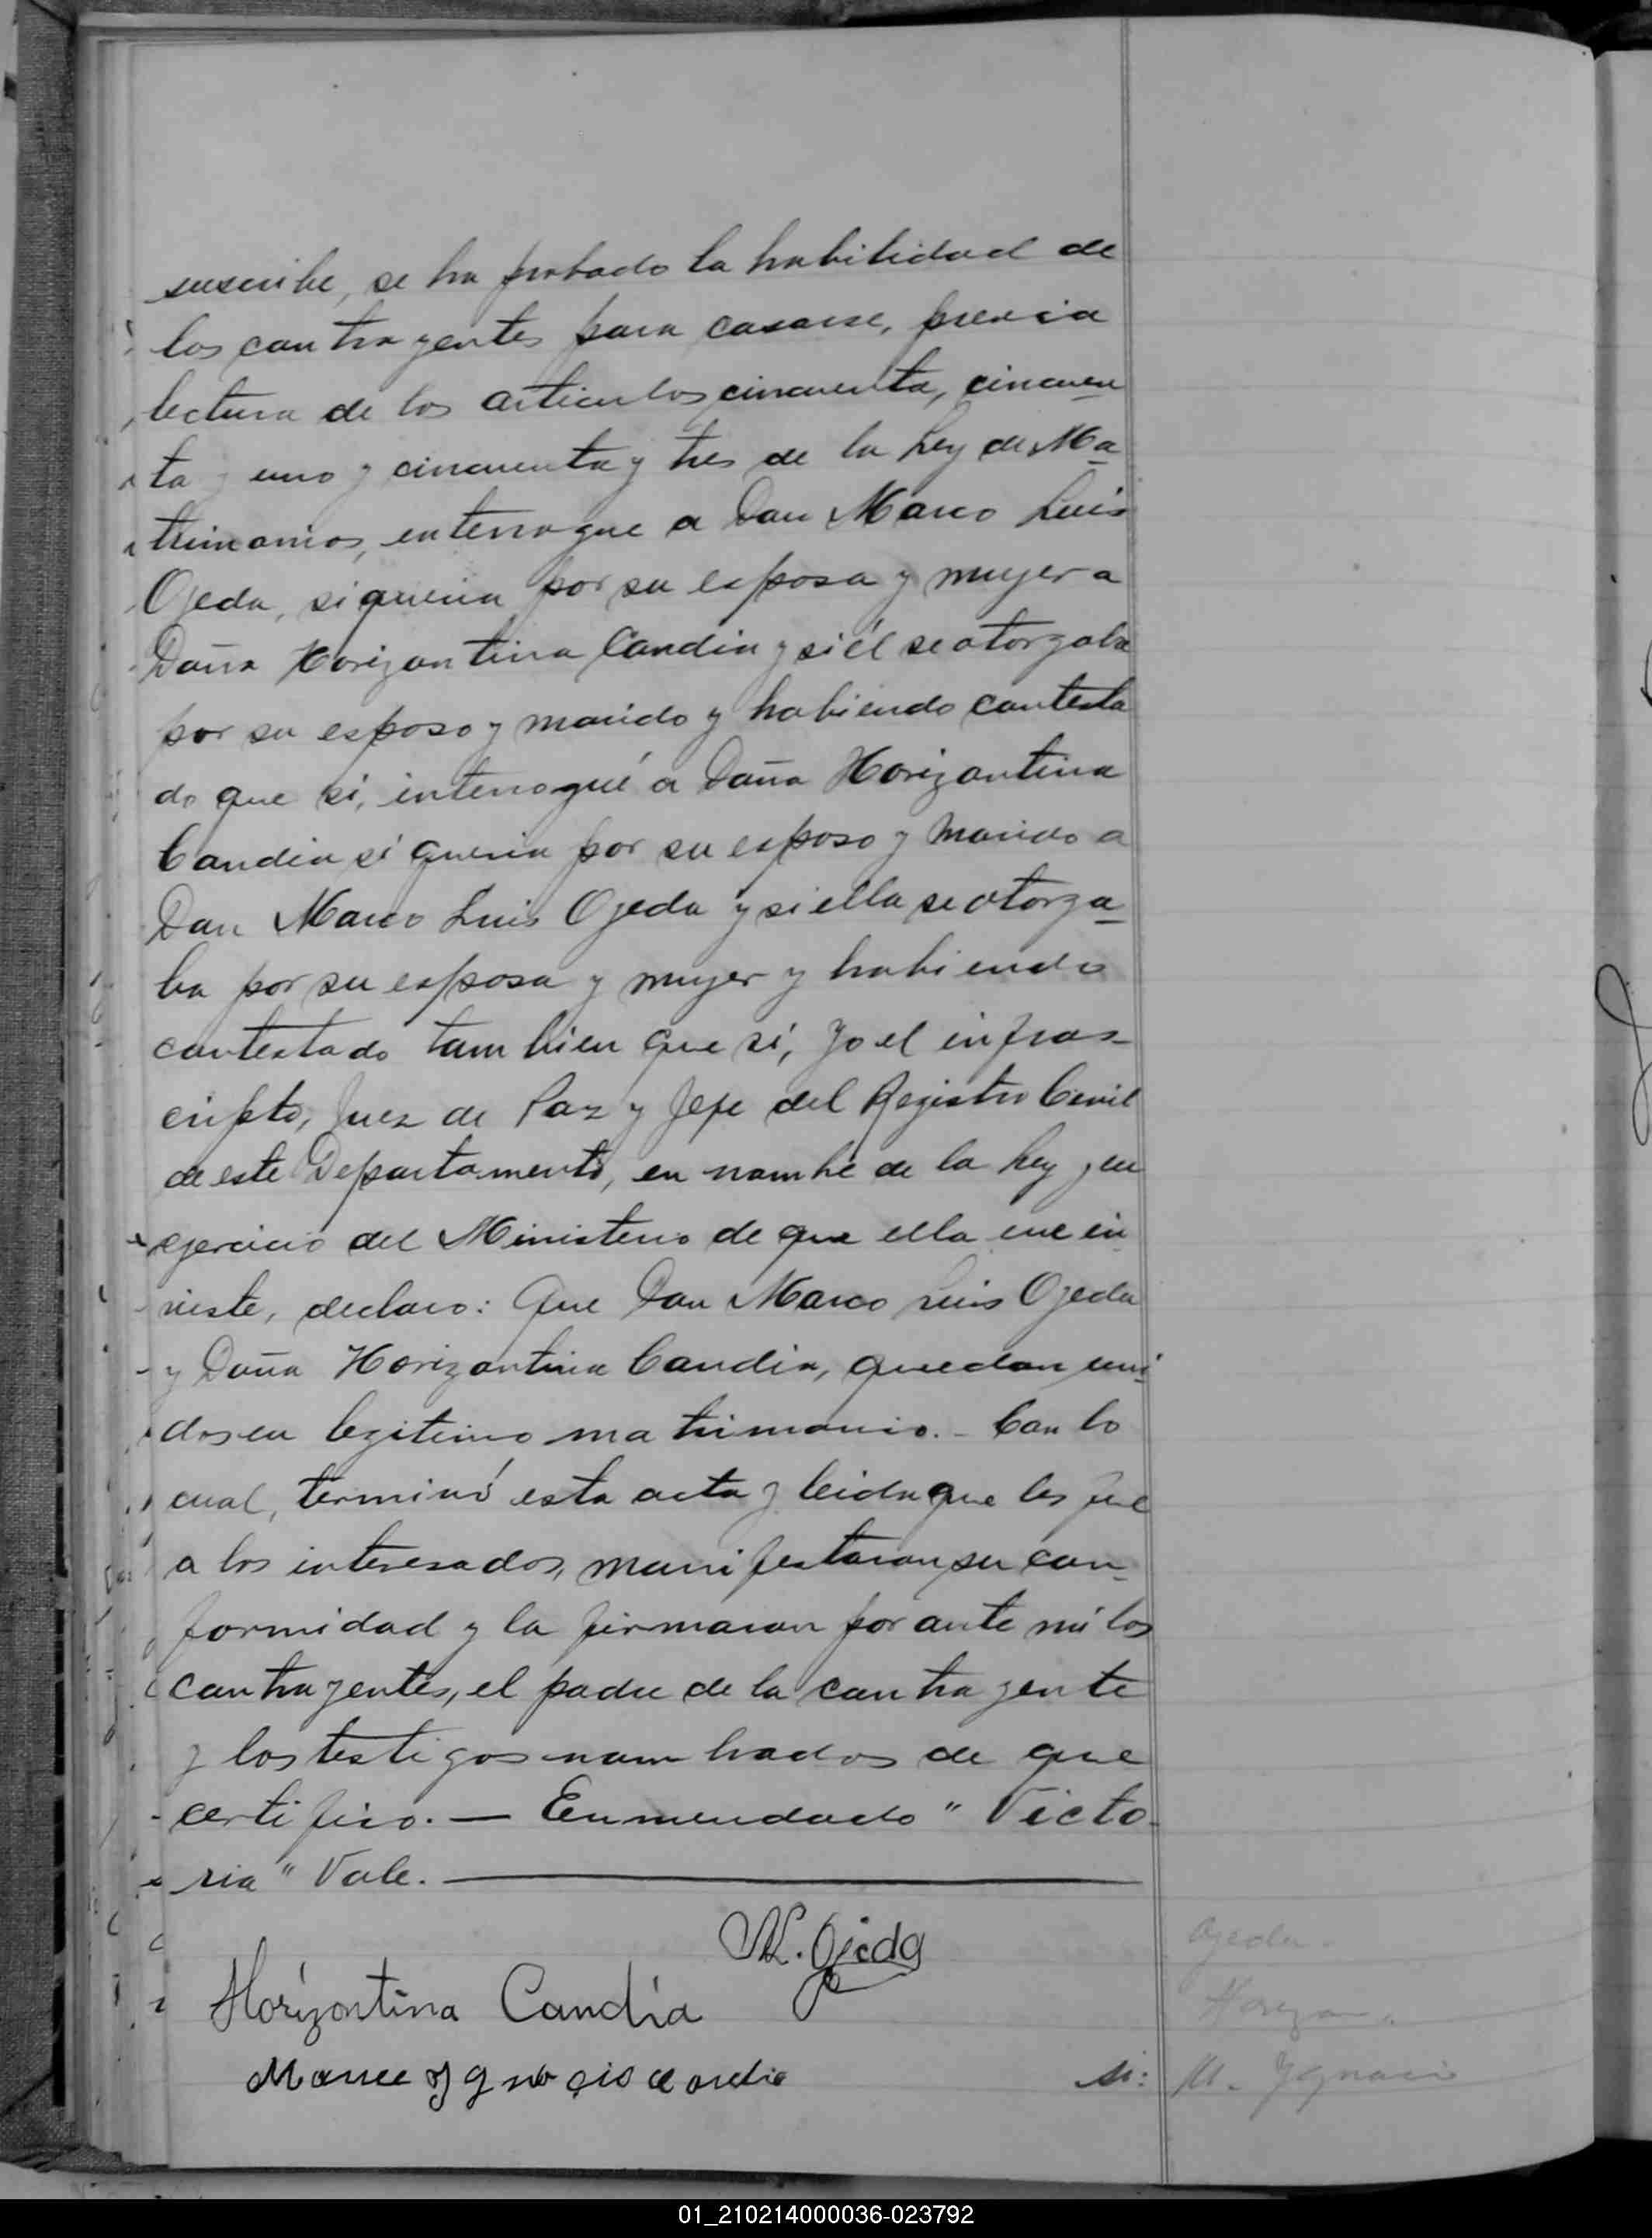 suscribe, se ha probado la habilidad de
los contrayentes para casarse, previa
lectura de los articulos cincuenta, cincuen
ta y uno y cincuenta y tres de la Ley de Ma
trimonios, interrogue a Don Marco Luis
Ojeda, si queria por su esposa y mujer a
Doña Horizontina Candia y si él se otorgaba
por su esposo y marido y habiendo contesta
do que si, interrogué a Doña Horizontina
Candia si queria por su esposo y marido a
Don Marco Luis Ojeda y si ella se otorga
ba por su esposa y mujer y habiendo
contestado tambien que si, Yo el infras-
cripto, Juez de Paz y Jefe del Registro Civil
de este Departamento, en nombre de la Ley y en
ejercicio del Ministerio de que ella me in
viste, declaro: Que Don Marco Luis Ojeda
y Doña Horizontina Candia, quedan uni
dos en legitimo matrimonio. - Con lo
cual, terminó esta acta y leida que les fue
a los interesados, manifestaron su con-
formidad y la firmaron por ante mi los
contrayentes, el padre de la contrayente
y los testigos nombrados de que
certifico. — Enmendado "Victo-
ria" Vale. —
M. L. Ojeda
Horizontina Candia
Manuel Ygnacio Candia
si:
Ojeda
Horizon
M. Ygnacio
01_210214000036-023792